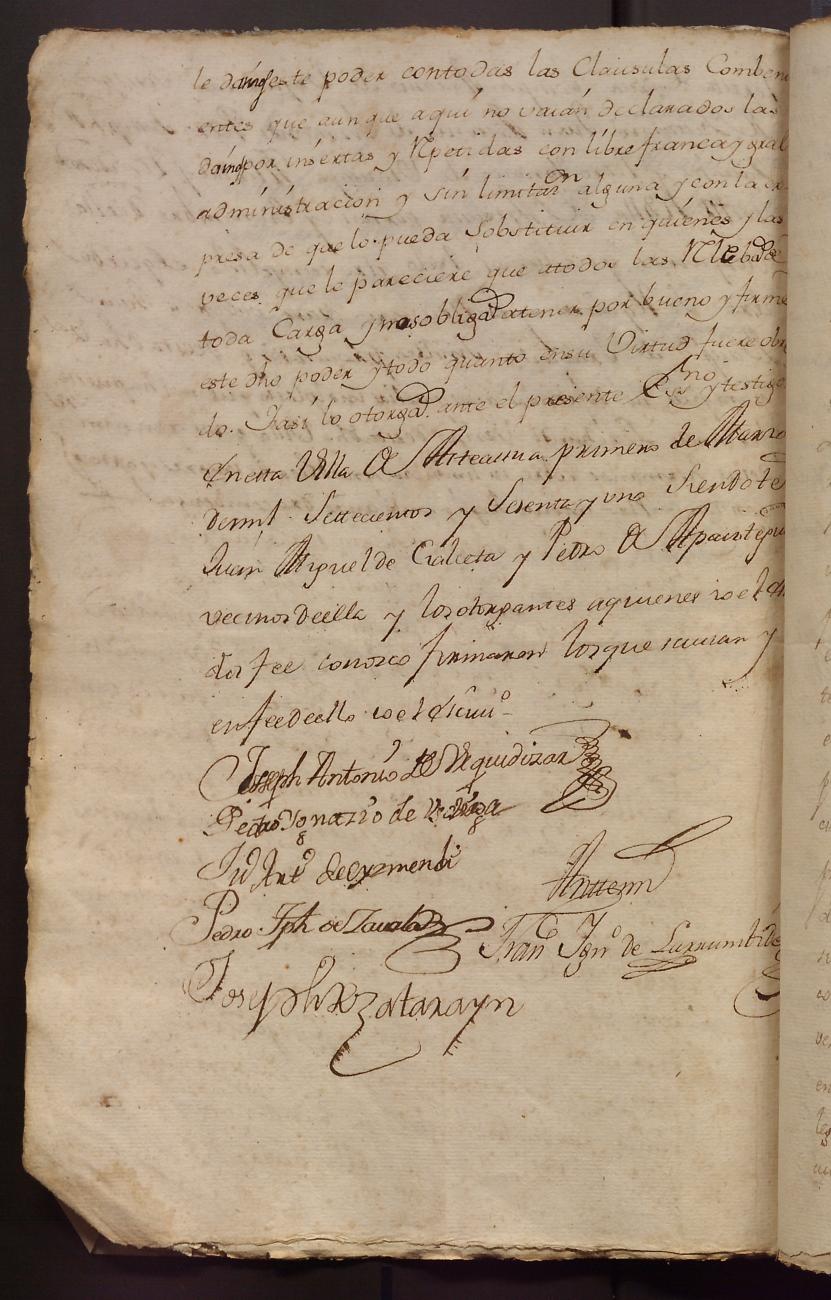 le damos este poder con todas las Clausulas Combeni
entes que aunque aqui no vaian declarados las
damos por insertas y Rpetidas con libre franca y gral
administracion y sin limitazn alguna y con la ex
presa de que lo pueda Sobstituir en quienes y las
veces que le pareciere que atodos las Rleba de
toda Carga y nos obligad atener por bueno y firme
este dho poder y todo quanto en su Virtud fuere obra
do. Jasi lo otorgad ante el presente Esno y testigo
Enesta Villa de Arteasua primero de Marzo
demil Settecientos y Sesenta y uno Siendo te
Juan Miguel de Galceta y Pedro de
vecinos de ella y los otorgantes aquienes io el es
doi fee conosco firmaron los que savian y
en fee de ello io el essuno
Joseph Antonio de Urquidizar
Pedro Ignazio de
Ju Anto de Eyzmendi
Anttemi
Pedro Jph de Zavala
Fran Igno de Larrumbide
Joseph de Zatarayn